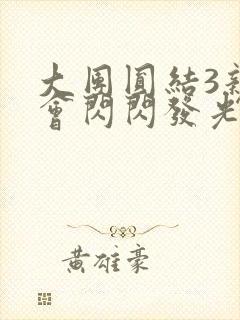 大團圓結3
會閃閃發光
黃雄豪